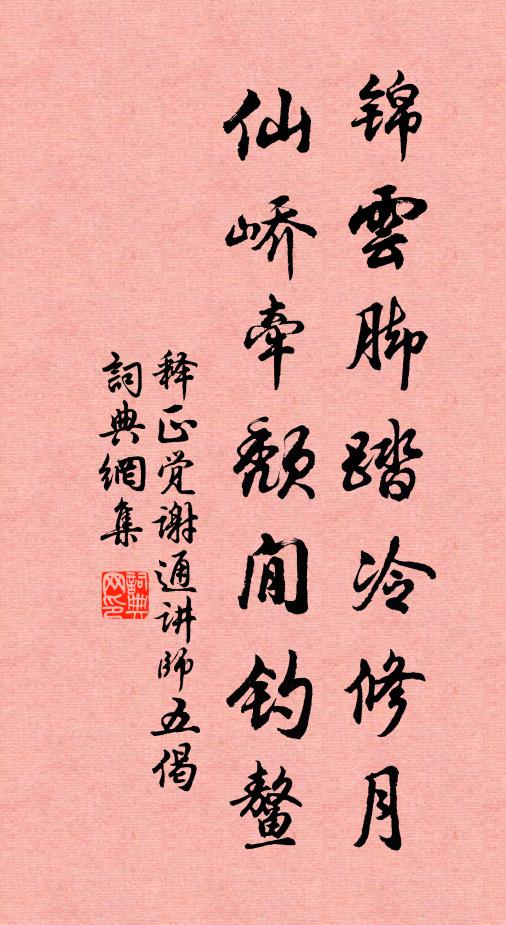 锦雲脚踏冷修月
仙峤牵颓闲钓鳌
释正觉谢通讲师五偈
詞典網集
詞典网印